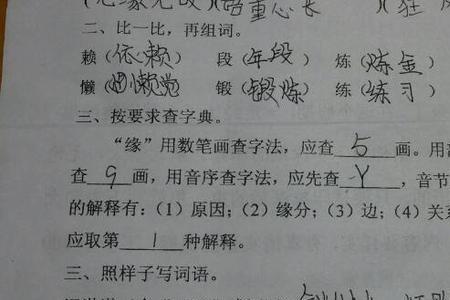 (无缘无故)(语重心长)(狂风
二、比一比，再组词。
赖(依赖) 段(年段) 炼(炼金)
懒(睡懒觉) 锻(锻炼) 练(练习)
三、按要求查字典。
“缘”用数笔画查字法，应查 5 画。用
查 9 画，用音序查字法，应先查 Y ，音节
的解释有：(1)原因；(2)缘分；(3)边；(4)关系
应取第 1 种解释。
三、照样子写词语。